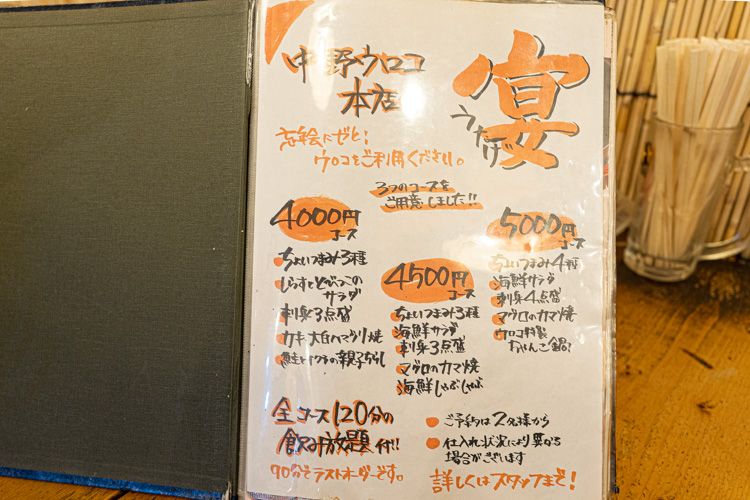 中野ウロコ
本店
宴
うたげ
忘年会にゼヒ!
ウロコをご利用ください。
3つのコースを
ご用意しました!!
4000円
コース
ちょいつまみ3種
しらすととびっこの
サラダ
刺身3点盛
カキ 大白ハマグリ焼
鮭とイクラの親子ちらし
4500円
コース
ちょいつまみ3種
海鮮サラダ
刺身3点盛
マグロのカマ焼
海鮮しゃぶしゃぶ
5000円
コース
ちょいつまみ4種
海鮮サラダ
刺身4点盛
マグロのカマ焼
ウロコ特製
ちゃんこ鍋!
全コース120分の
飲み放題付!!
90分でラストオーダーです。
ご予約は2名様から
仕入れ状況により異なる
場合がございます
詳しくはスタッフまで!